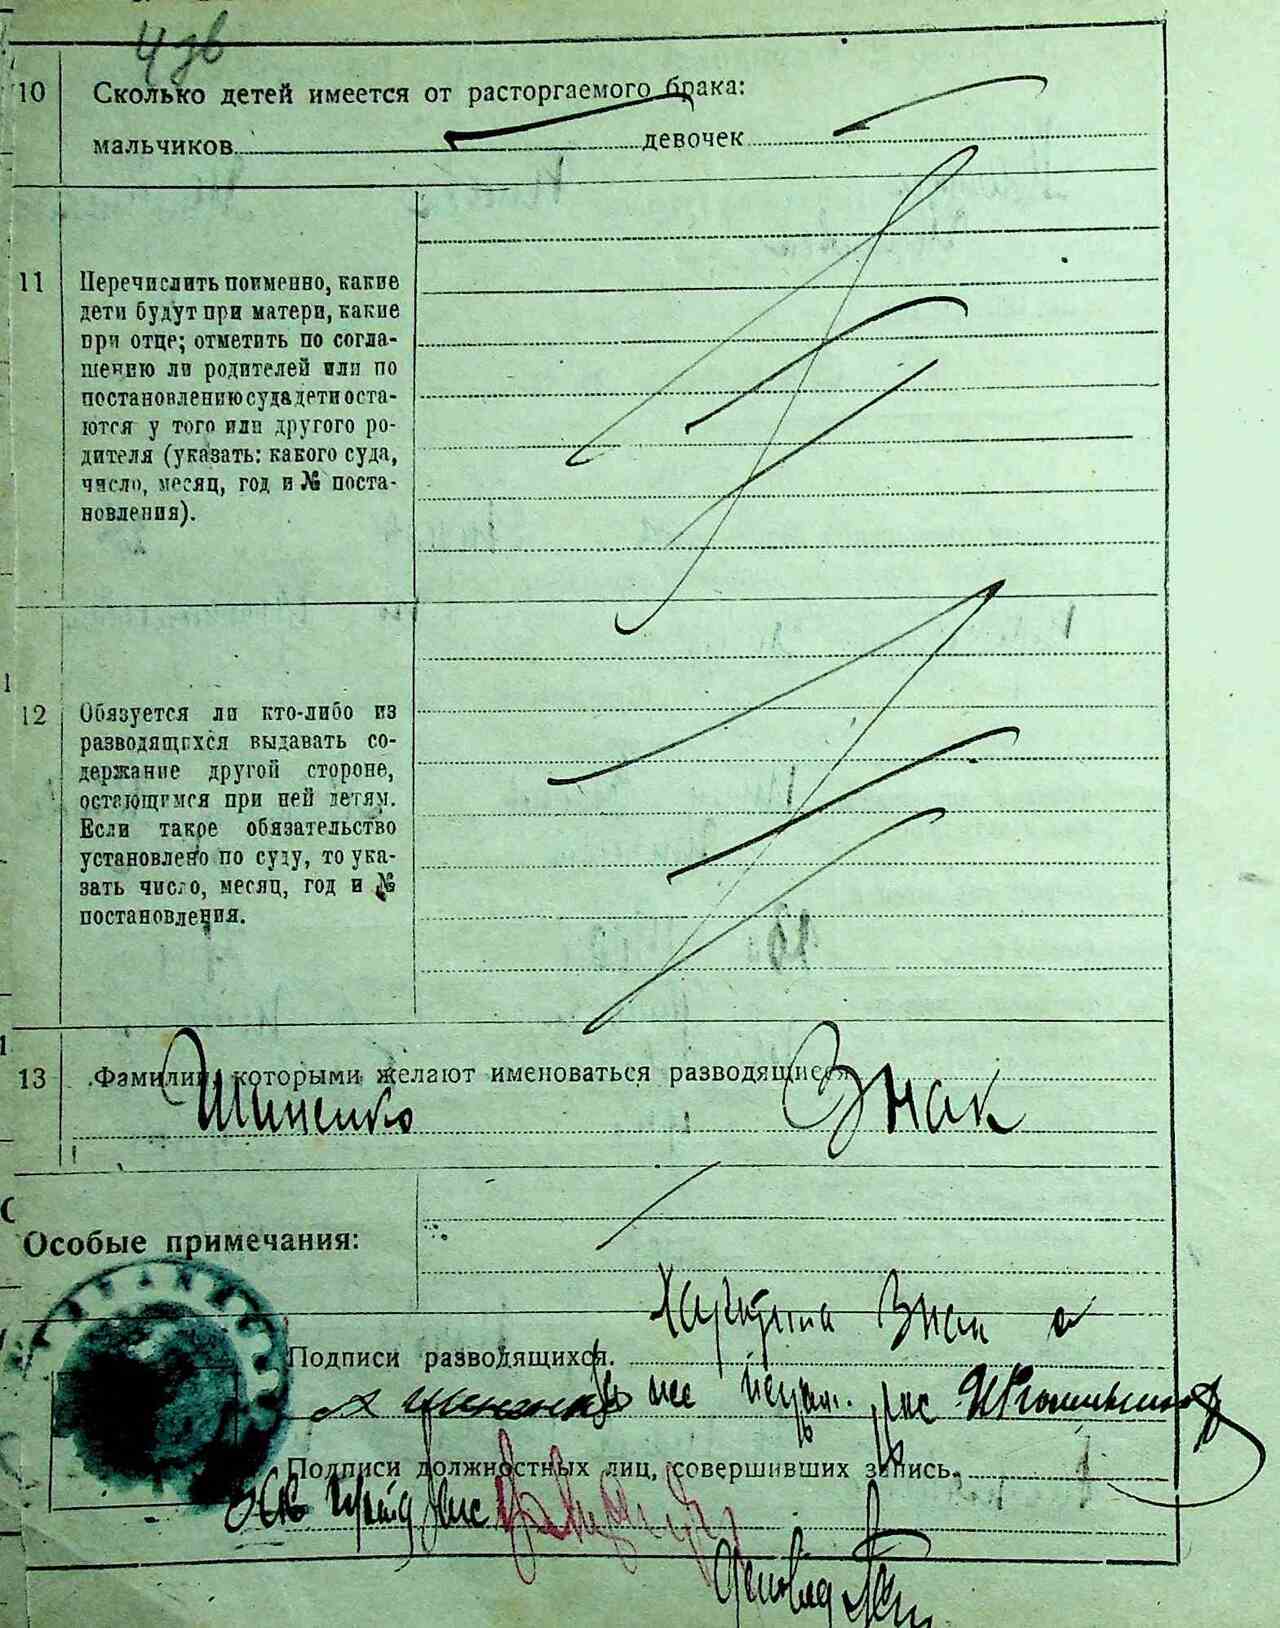 10 Сколько детей имеется от расторгаемого брака:
мальчиков девочек
11 Перечислить поименно, какие
дети будут при матери, какие
при отце; отметить по согла-
шению ли родителей или по
постановлению суда дети оста-
ются у того или другого ро-
дителя (указать: какого суда,
число, месяц, год и № поста-
новления).
12 Обязуется ли кто-либо из
разводящихся выдавать со-
держание другой стороне,
остающимся при ней детям.
Если такое обязательство
установлено по суду, то ука-
зать число, месяц, год и №
постановления.
13 Фамилии, которыми желают именоваться разводящиеся
Шиненко Знак
Особые примечания:
Знак
Подписи разводящихся.
Подписи должностных лиц, совершивших запись.